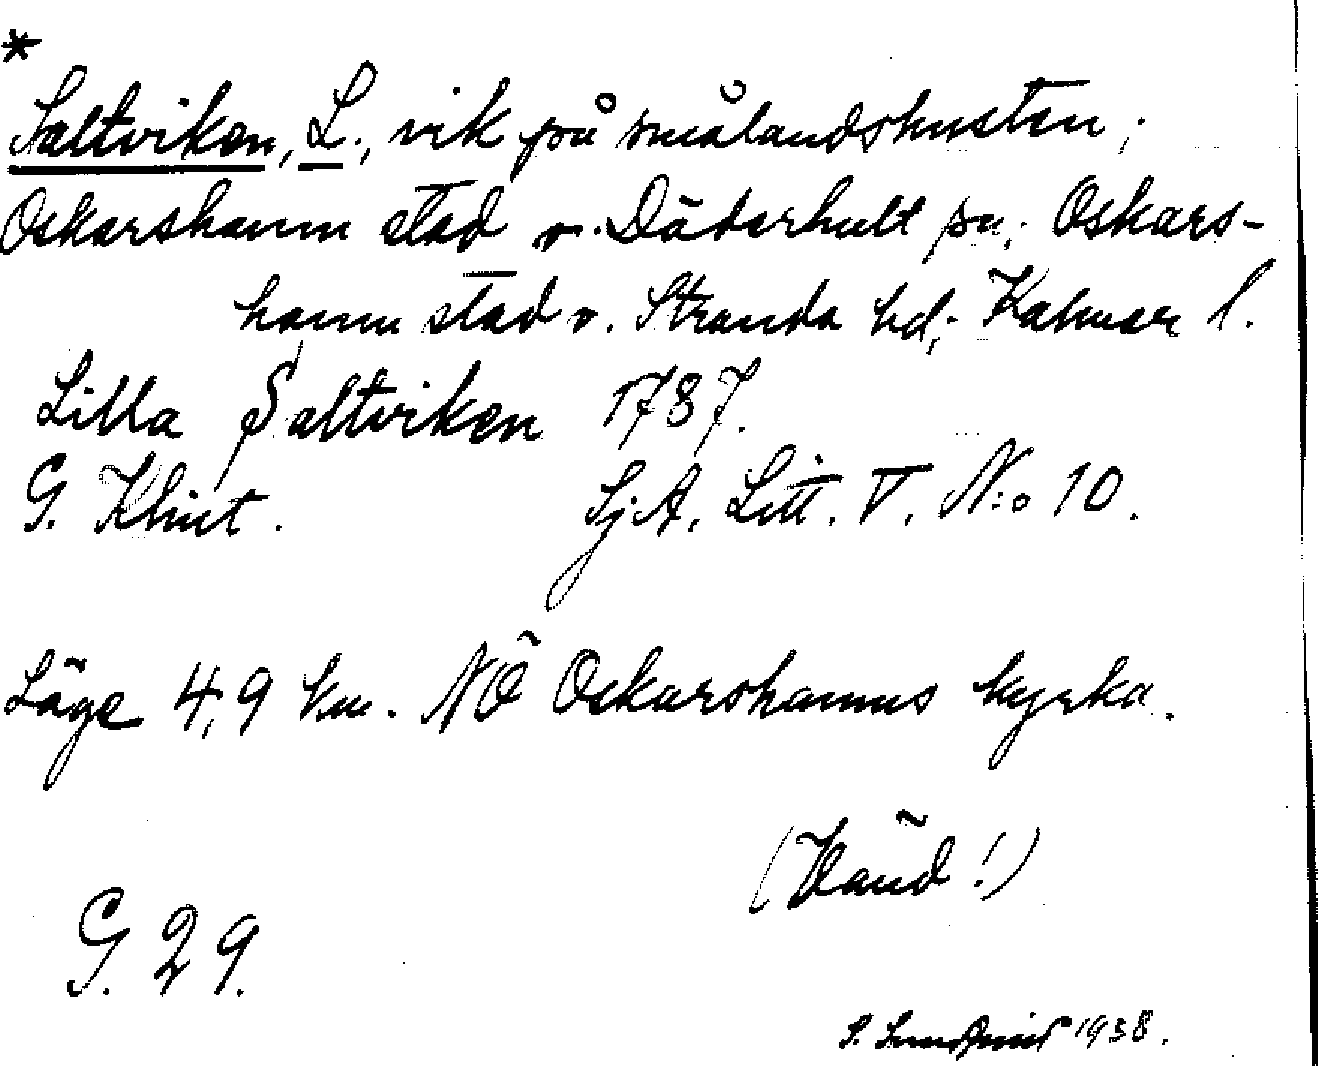 *
Saltviken, L., vik på smålandskusten;
Oskarshamn stad o. Döderhult sn; Oskars-
hamn stad o. Stranda hd; Kalmar l.
Lilla Saltviken 1787.
G. Klint. SjA. Litt. V. N:o 10.
Läge 4,9 km. NÖ Oskarshamns kyrka.
(Vänd!)
G. 29.
S. Lundqvist 1938.